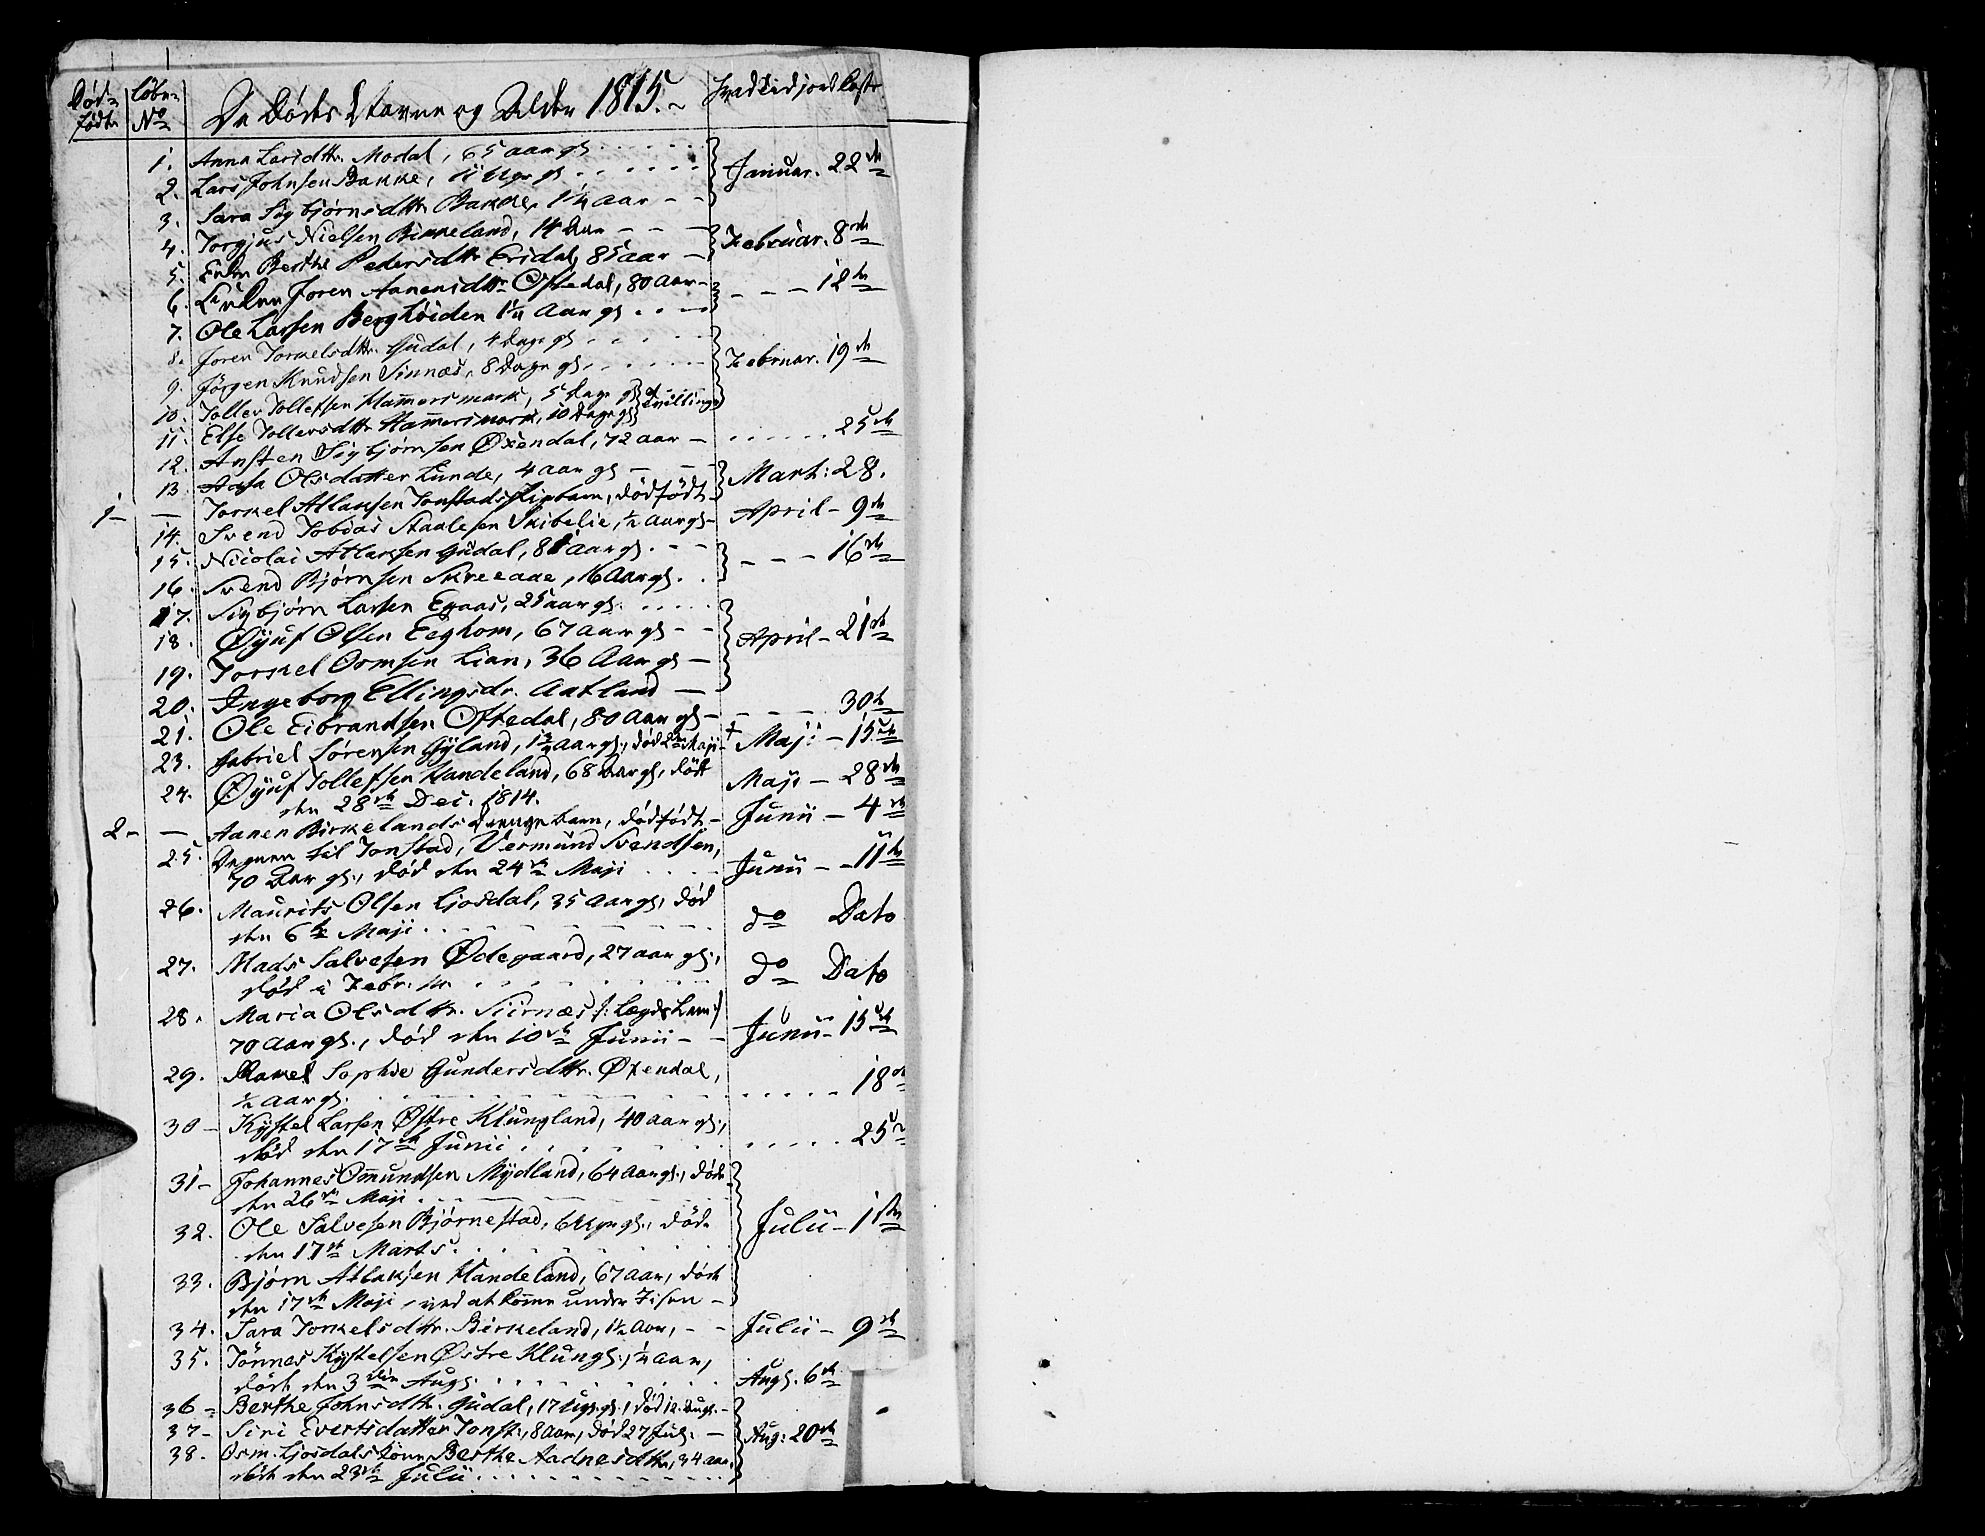 Død= fødte | Løbe= No | De Dødes Navne og Alder 1815.~ | Jordkastelse
1. Anna Larsdttr. Modal, 65 aar gl. . . . . Januar. 22de
2. Lars Johnsen Bakke, 11 Uger gl. . . . . .
3. Sara Sigbjørnsdttr. Bakke, 1¼ Aar - -
4. Torgjus Nielsen Birkeland, 14 Aar - - - Februar. 8de
5. Enken Berthe Pedersdttr Eridal, 85 aar -
6. Enken Joren Aanensdttr Oftedal, 80 Aar - - - - 12te
7. Ole Larsen Berghøiden 1½ Aar gl. . . -
8. Joren Torkelsdttr. Gudal, 4 Dage gl. . . . . . Februar. 19de
9. Jørgen Knudsen Sinnæs, 8 Dage gl. . . . . .
10. Tollev Tollefsen Hammersmark, 5 Dage gl.
11. Else Tollevsdttr Hammersmark, 10 Dage gl. Tvillinger
12. Ansten Sigbjørnsen Øxendal, 72 aar - . . . . . . 25de
13. Aasa Olsdatter Lunde, 4 Aar gl. - - - Mart: 28.
1- - Torkel Atlaksen Tonstads Pigebarn, dødfødt -
14. Svend Tobias Staalesen Skibelie, ½ Aar gl. - April - 9de
15. Nicolai Atlaksen Gudal, 81 Aar gl. - - - - - 16de
16. Svend Bjørnsen Skreeaae, 16 Aar gl. .
17. Sigbjørn Larsen Egaas, 25 aar gl. . . . . .
18. Øyuf Olsen Eeghom, 67 Aar gl. - - April - 21de
19. Torkel Ormsen Lian, 36 Aar gl. -
20. Ingeborg Ellingsdr. Aatland -
21. Ole Eibrandsen Oftedal, 80 Aar gl. - - - - 30te
23. Gabriel Sørensen Gyland, 1¾ Aar gl., død 2den Maji - + Maji - 15de
24. Øyuf Tollefsen Handeland, 68 Aar gl., død Maji - 28de
den 28de Dec. 1814.
2- - Aanen Birkelands Drengebarn, dødfødt - Junii - 4de
25. Degnen til Tonstad, Vermund Svendsen,
70 Aar gl., død den 24de Maji . . . . Junii - - 11te
26. Maurits Olsen Liosdal, 35 Aar gl., død
den 6te Maji . . . . do Dato
27. Mads Salvesen Ødegaard, 27 aar gl.,
død i Febr. . . . . do Dato
28. Maria Olsdttr. Siirnæs /: Lægdslem :/
70 Aar gl., død den 10de Junii - - Junii - 15de
29. Rakel Sophie Gundersdttr. Øxendal,
½ Aar gl. . . . . 18de
30- Kystel Larsen Østre Klungland, 40 Aar gl.,
død den 17de Junii . . . . 25de
31- Johannes Omundsen Mydland, 64 Aar gl., døde
den 26de Maji . . . .
32. Ole Salvesen Bjørnestad, 6 Uger gl., døde Julii - 1ste
den 17de Marts. . . . .
33. Bjørn Atlaksen Handeland, 67 Aar, døde
den 17de Maji, ved at komme under Iisen -
34. Sara Torkelsdttr. Birkeland, 1½ Aar, - - Julii - 9de
35. Tønnes Kystelsen Østre Klungl., ¼ Aar,
døde den 3die Augs. . . . . Augs. 6te
36- Berthe Johnsdttr. Gudal, 17 Uger gl., død 12 Augs. -
37- Siri Evertsdatter Tonst:, 8 Aar, død 27 Jul: - Aug: 20de
38. Osm. Liosdals Kone Berthe Aadnesdttr, 34 aar,
døde den 23de Julii . . . .